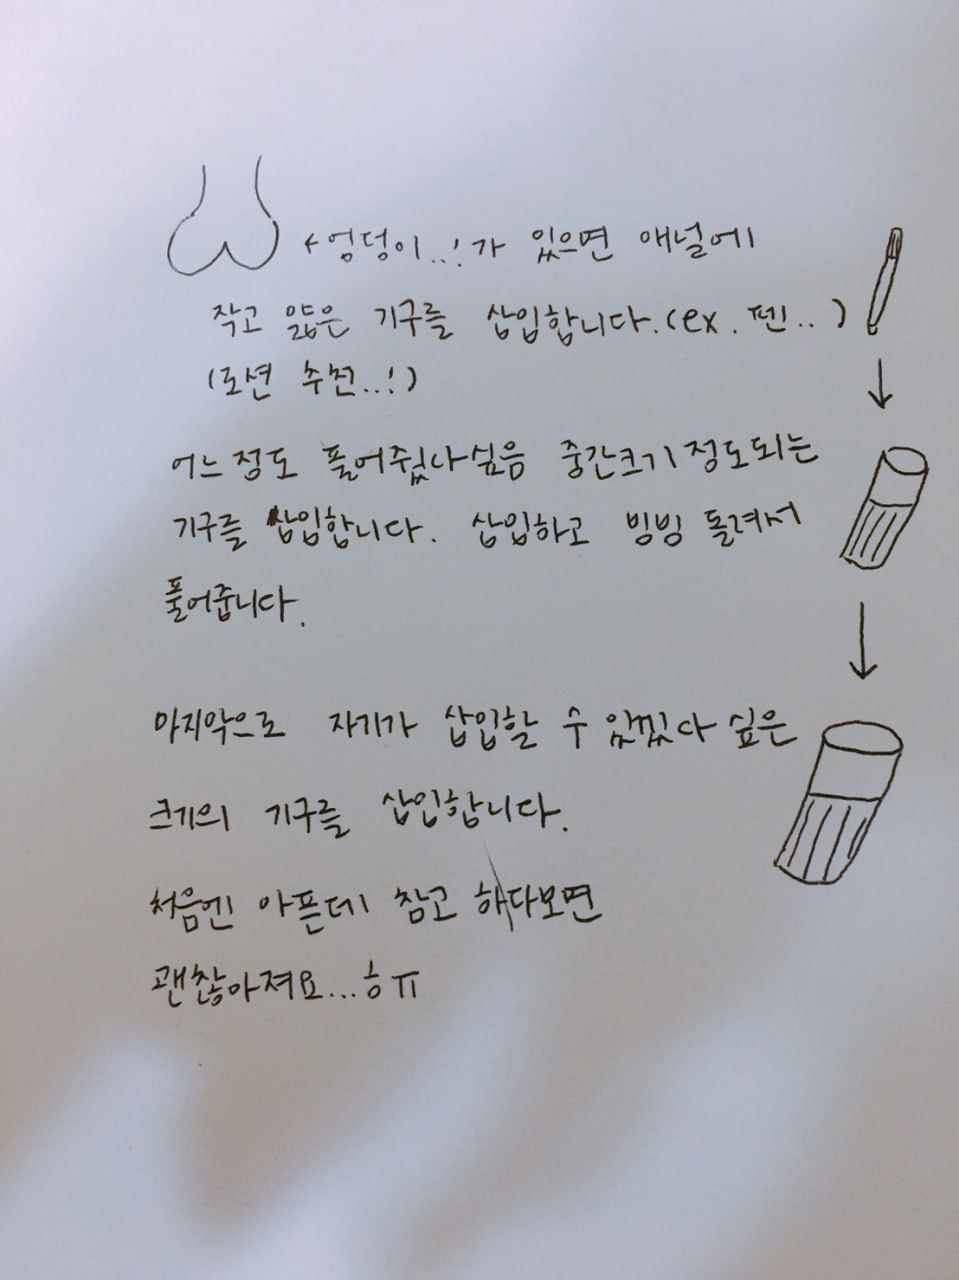 ←엉덩이..! 가 있으면 애널에
작고 얇은 기구를 삽입합니다.(ex. 펜..)
(로션 추천..!)
어느정도 풀어줬나싶음 중간크기정도되는
기구를 삽입합니다. 삽입하고 빙빙 돌려서
풀어줍니다.
마지막으로 자기가 삽입할 수 있겠다 싶은
크기의 기구를 삽입합니다.
처음엔 아픈데 참고 하다보면
괜찮아져요...ㅎㅠ